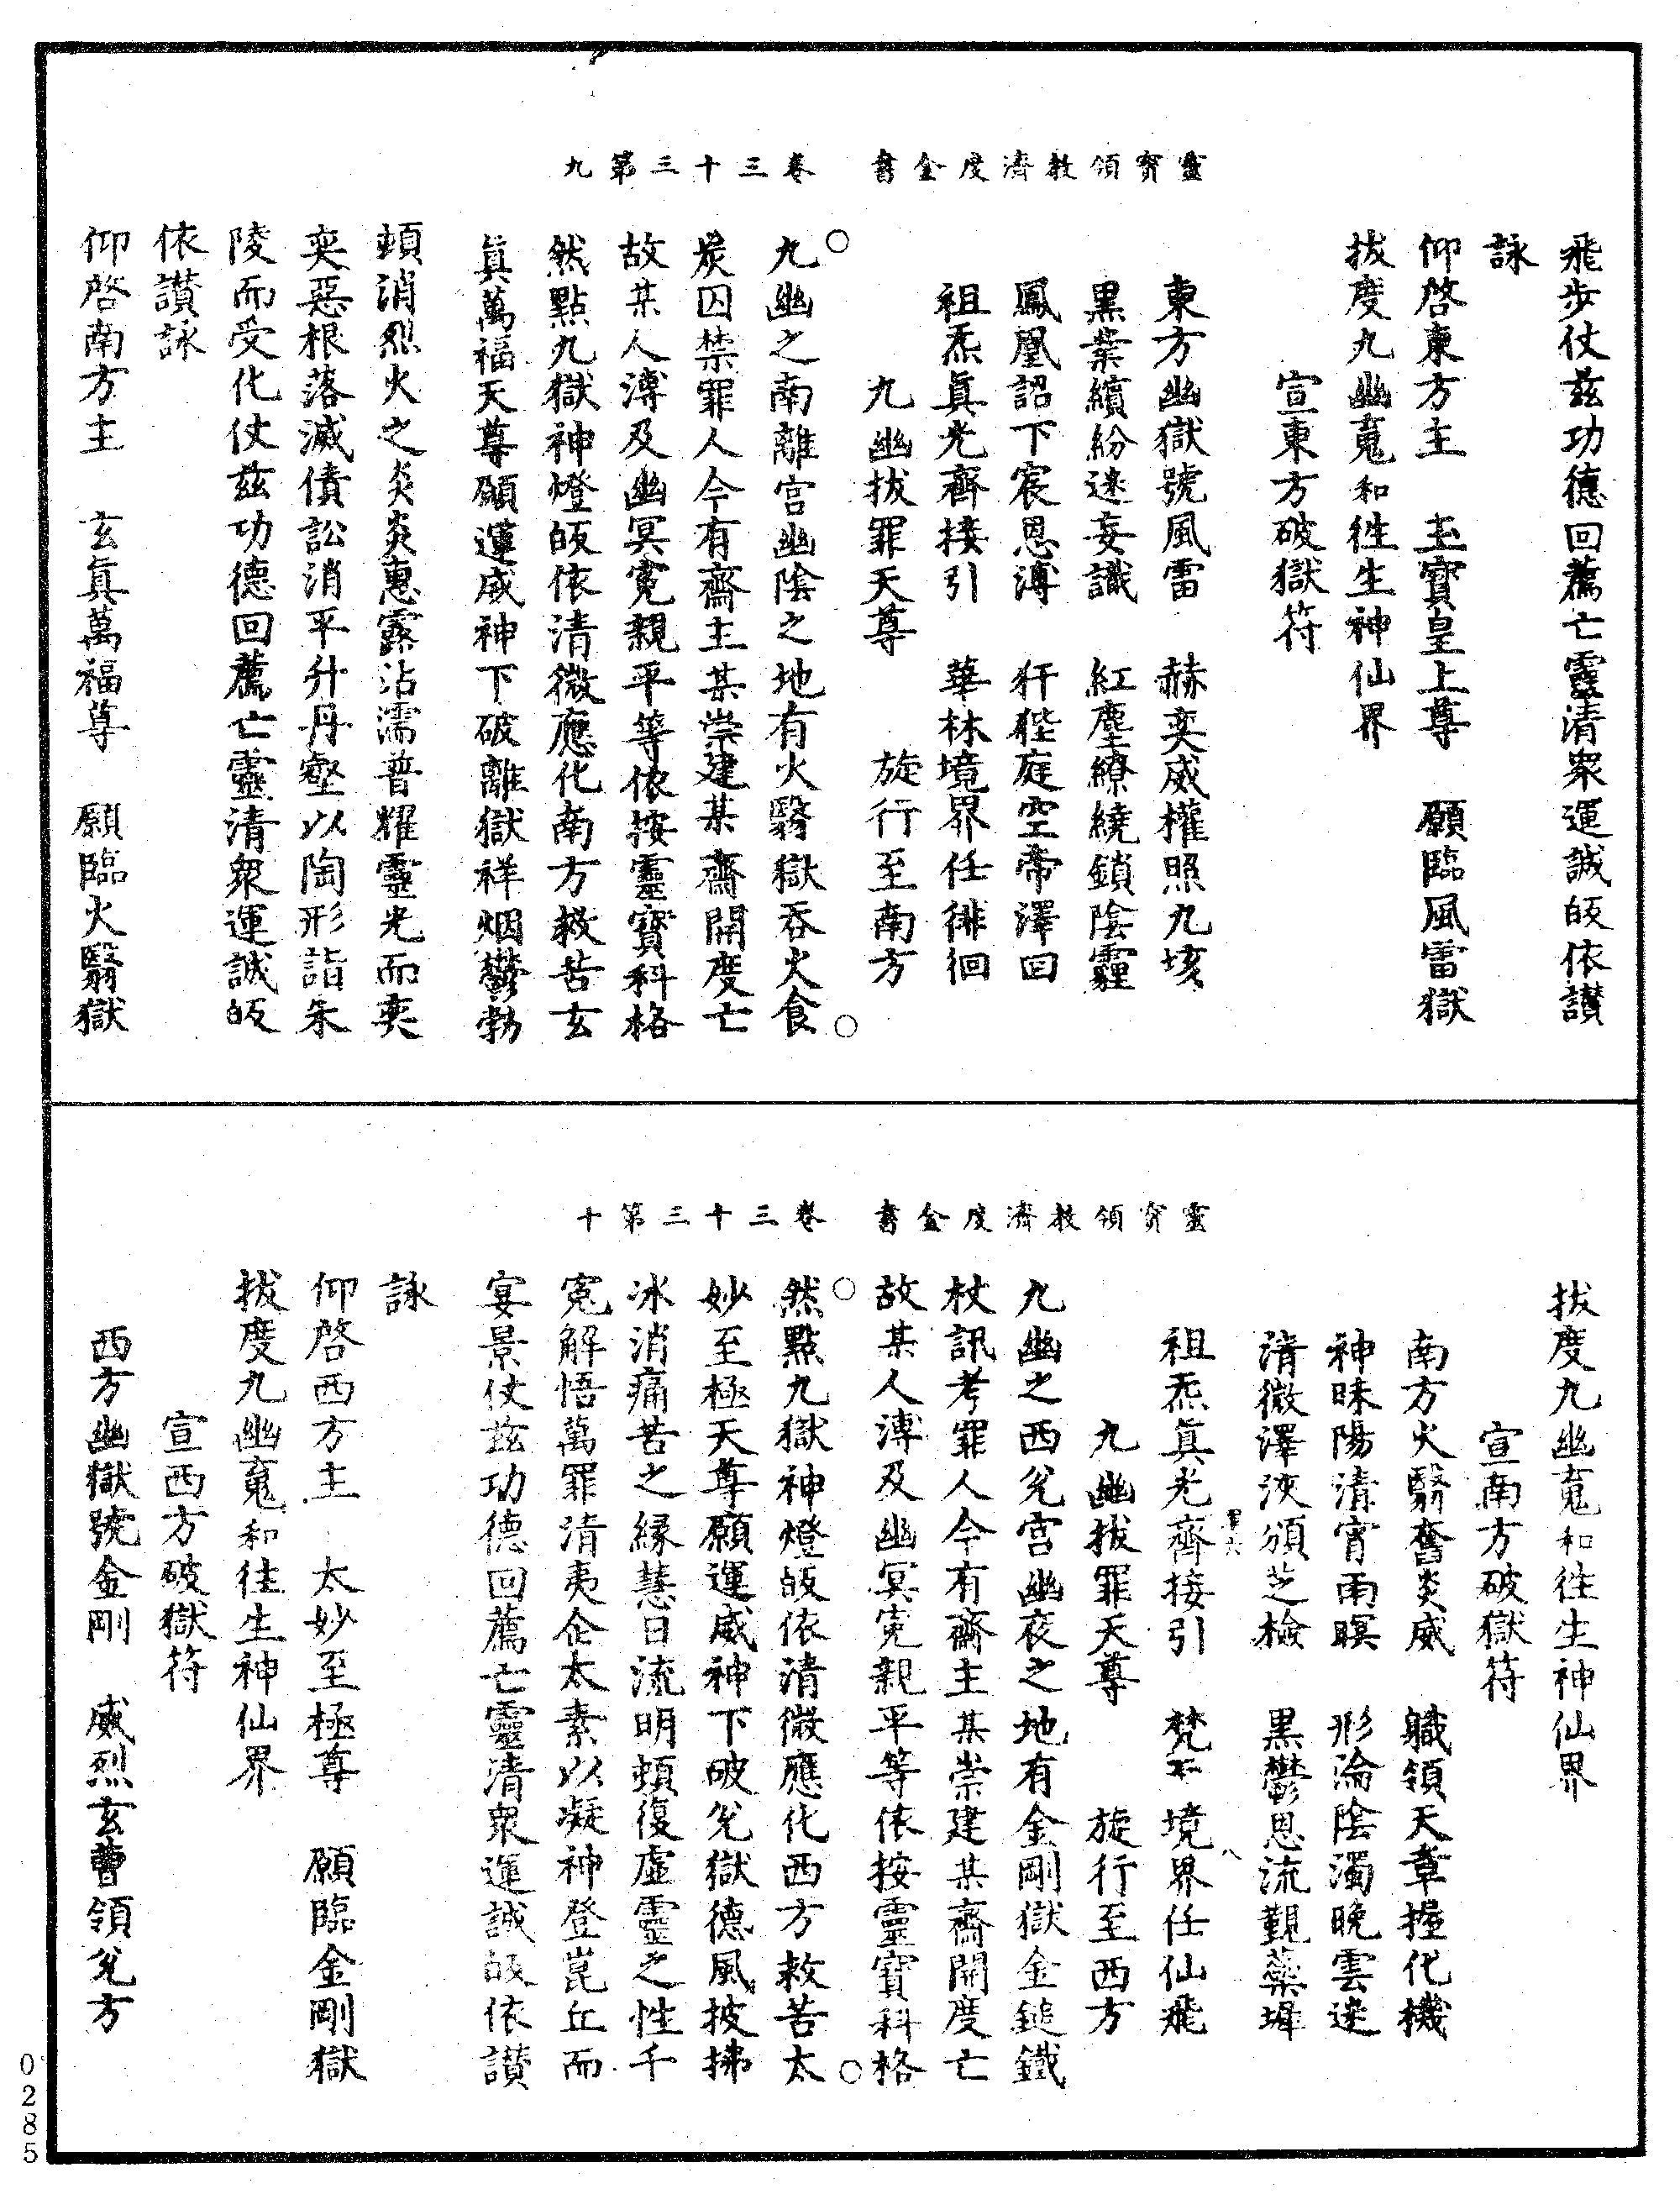 靈寶領教濟度金書　卷三十三第九
飛步仗茲功德回薦亡靈清衆運誠皈依讃
詠
仰啓東方主　玉寶皇上尊　願臨風雷獄
拔度九幽䰟和徃生神仙界
宣東方破獄符
東方幽獄號風雷　赫奕威權照九垓
黑業繽紛迷妄識　紅塵繚繞鎖陰霾
鳳凰詔下宸恩溥　犴狴庭空帝澤回
祖炁眞光齊接引　華林境界任徘徊
九幽拔罪天尊　旋行至南方
九幽之南離宮幽陰之地有火翳獄吞火食
炭囚禁罪人今有齋主某崇建某齋開度亡
故某人溥及幽冥寃親平等依按靈寶科格
然點九獄神燈皈依清微應化南方救苦玄
眞萬福天尊願運威神下破離獄祥烟鬱勃
頓消烈火之炎炎惠露沾濡普耀靈光而奕
奕惡根落滅債訟消平升丹壑以陶形詣朱
陵而受化仗茲功德回薦亡靈清衆運誠皈
依讃詠
仰啓南方主　玄眞萬福尊　願臨火翳獄
靈寶領教濟度金書　卷三十三第十
拔度九幽䰟和徃生神仙界
宣南方破獄符
南方火翳奮炎威　職領天章握化機
神昧陽清宵雨暝　形淪陰濁晚雲迷
清微澤浹頒芝檢　黑鬱恩流覲蘂墀
祖炁眞光齊接引　梵不境界任仙飛
九幽拔罪天尊　旋行至西方
九幽之西兊宮幽夜之地有金剛獄金鎚鐵
杖訊考罪人今有齋主某崇建某齋開度亡
故某人溥及幽冥寃親平等依按靈寶科格
然點九獄神燈皈依清微應化西方救苦太
妙至極天尊願運威神下破兊獄德風披拂
冰消痛苦之縁慧日流明頓復虛靈之性千
寃解悟萬罪清夷企太素以凝神登崑丘而
宴景仗茲功德回薦亡靈清衆運誠皈依讃
詠
仰啓西方主　太妙至極尊　願臨金剛獄
拔度九幽䰟和往生神仙界
宣西方破獄符
西方幽獄號金剛　威烈玄曹領兊方
0285